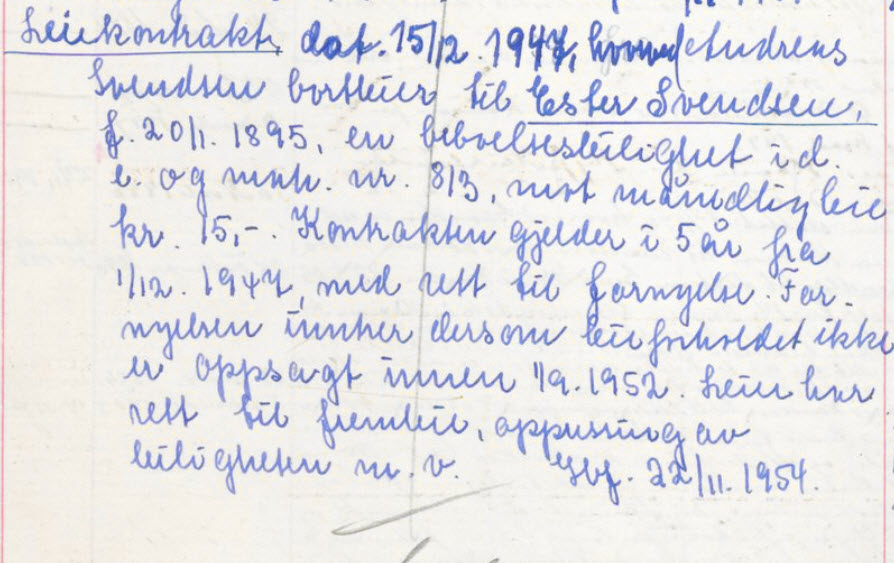 Leiekontrakt, dat. 15/12. 1947, hvorved Andreas
Svendsen bortleier til Ester Svendsen,
f. 20/1. 1895, en beboelsesleilighet i d.
e. og matr. nr. 8/3, mot månedlig leie
kr. 15,-. Kontrakten gjelder i 5 år fra
1/12. 1947, med rett til fornyelse. For-
nyelsen inntrer dersom leieforholdet ikke
er oppsagt innen 1/9. 1952. Leier har
rett til fremleie, oppussing av
leiligheten m. v. Tgl. 22/11. 1954.